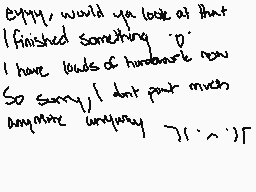 eyyy, would ya look at that
I finished something ·o·
I have loads of homework now
So sorry, I dont post much
anymore anyway ¬l( · ^ · )l⌐